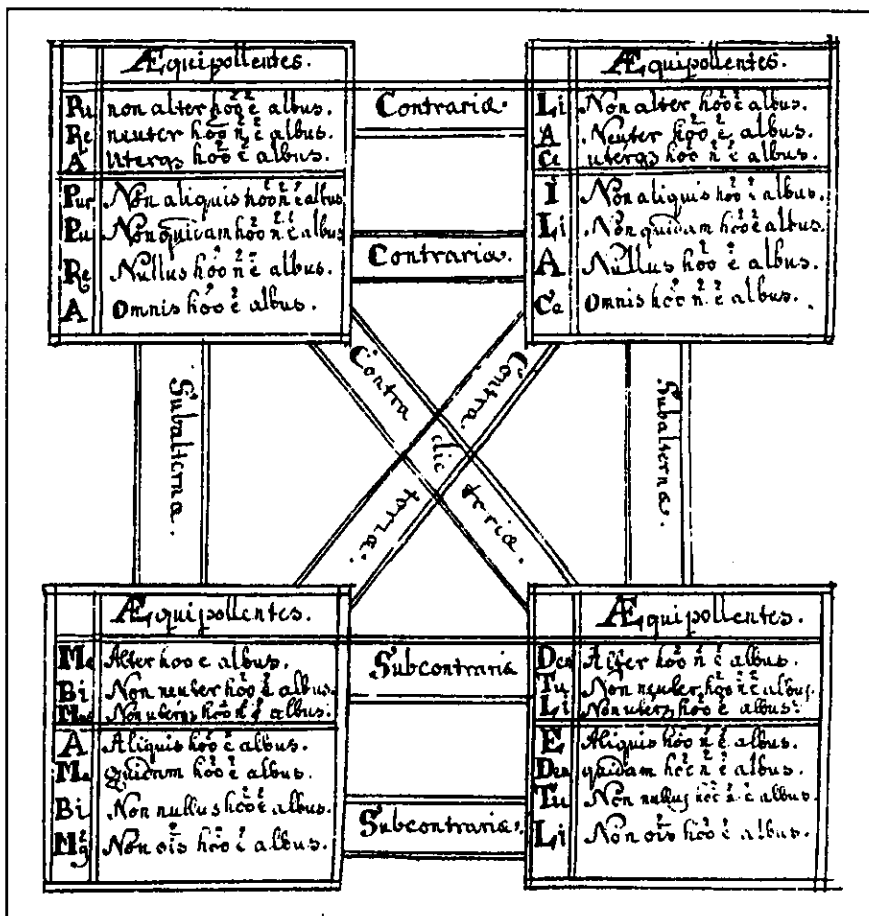 Æquipollentes.
Pu non alter hoo n̄ ē albus.
Re neuter hoo n̄ ē albus.
A Uterqȝ hoo ē albus.
Pur Non aliquis hoo n̄ ē albus
Pu Non quidam hoo n̄ ē albus
Re Nullus hoo n̄ ē albus.
A Omnis hoo ē albus.
Contrariæ.
Contrariæ.
Æquipollentes.
Li Non alter hoo ē albus.
A Neuter hoo ē albus.
Ce uterqȝ hoo n̄ ē albus.
I Non aliquis hoo ē albus.
Li Non quidam hoo ē albus.
A Nullus hoo ē albus.
Ce Omnis hoo n̄ ē albus.
Subalternæ.
Contra
dic
toriæ.
Contra
toriæ.
Subalternæ.
Æquipollentes.
Me Alter hoo e albus.
Bi Non neuter hoo ē albus.
Non uterqȝ hoo n̄ ē albus.
A Aliquis hoo ē albus.
Me quidam hoo ē albus.
Bi Non nullus hoo ē albus.
Non oīs hoo ē albus.
Subcontraria
Subcontrariæ.
Æquipollentes.
Den Alter hoo n̄ ē albus.
Tu Non neuter hoo n̄ ē albus.
Li Non uterqȝ hoo ē albus.
E Aliquis hoo n̄ ē albus.
Den quidam hoo n̄ ē albus.
Tu Non nullus hoo n̄ ē albus.
Li Non oīs hoo ē albus.